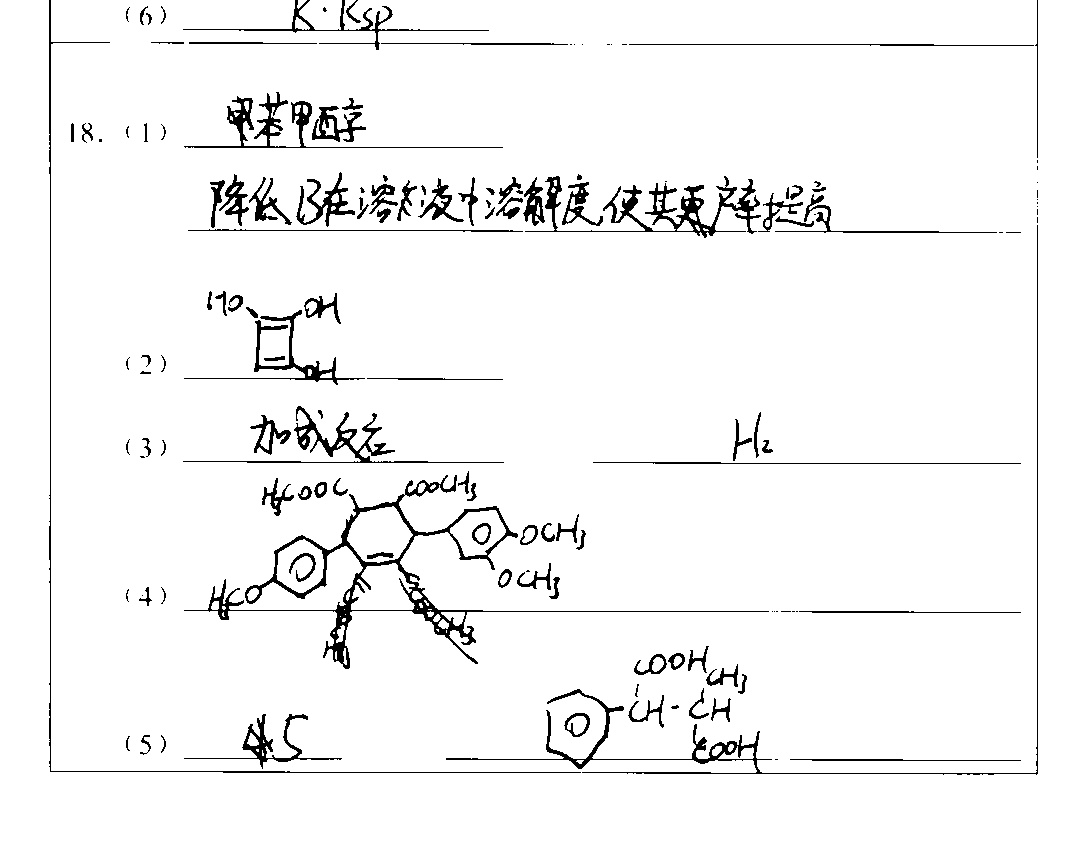 (6) K·Ksp
18. (1) 甲苯甲醇
降低B在溶液中溶解度,使其产率提高
HO OH
(2) OH
(3) 加成反应 H₂
H₃COOC COOCH₃
OCH₃
(4) H₃CO OCH₃
COOH CH₃
CH-CH
(5) 5 COOH